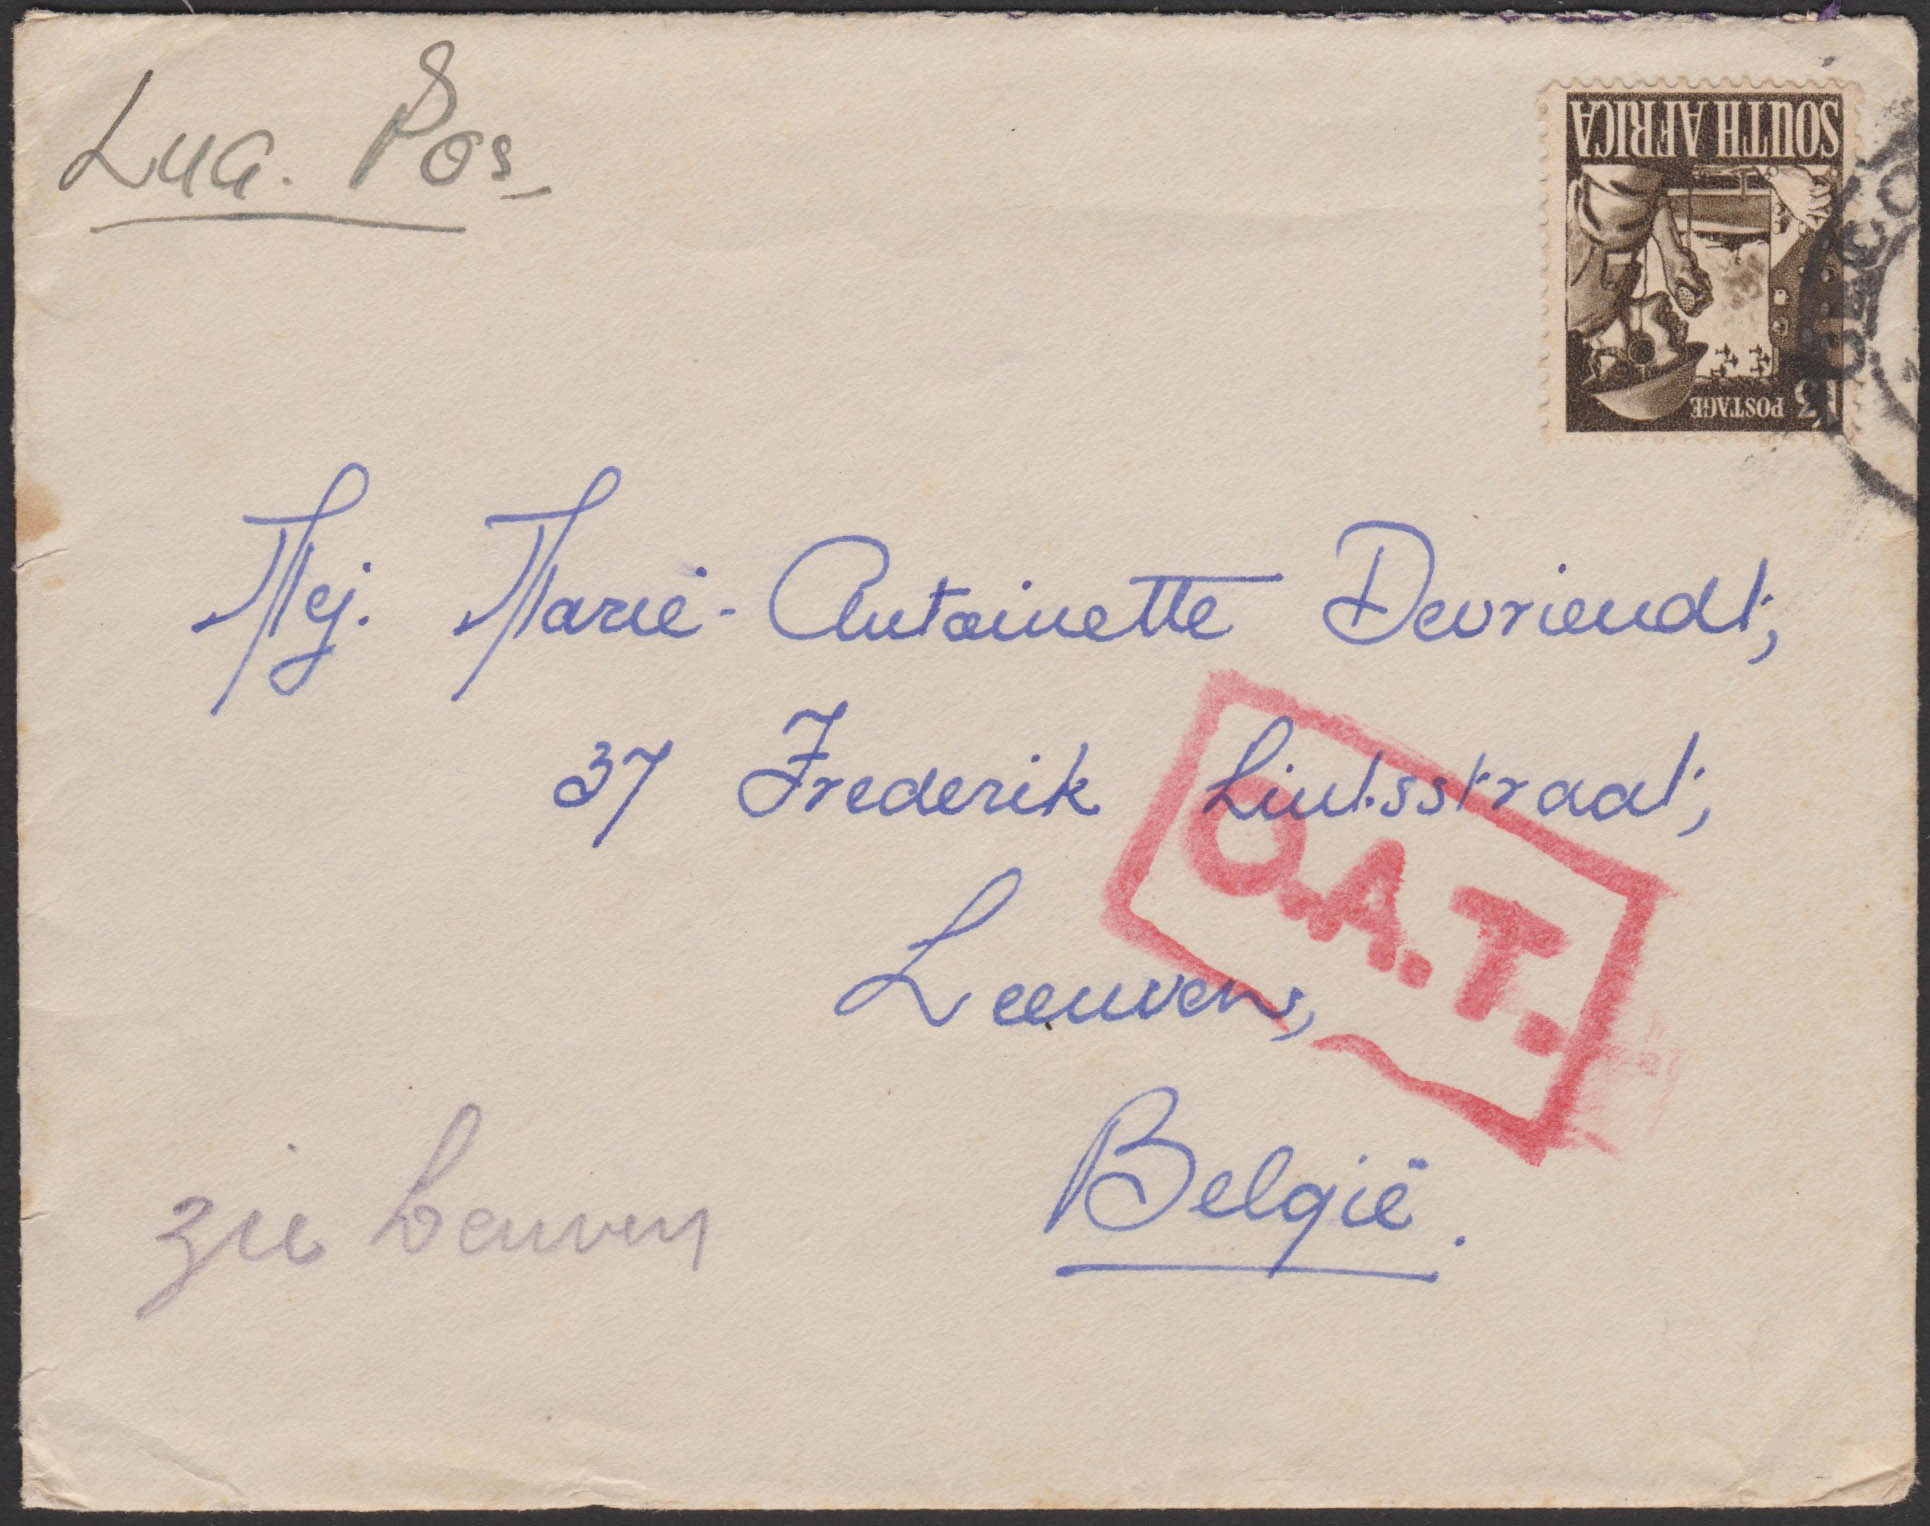 Lug. Pos
SOUTH AFRICA
POSTAGE
Mej. Marië-Antoinette Devriendt,
37 Frederik Lintsstraat,
O.A.T.
Leeuven,
België.
zie Leuven